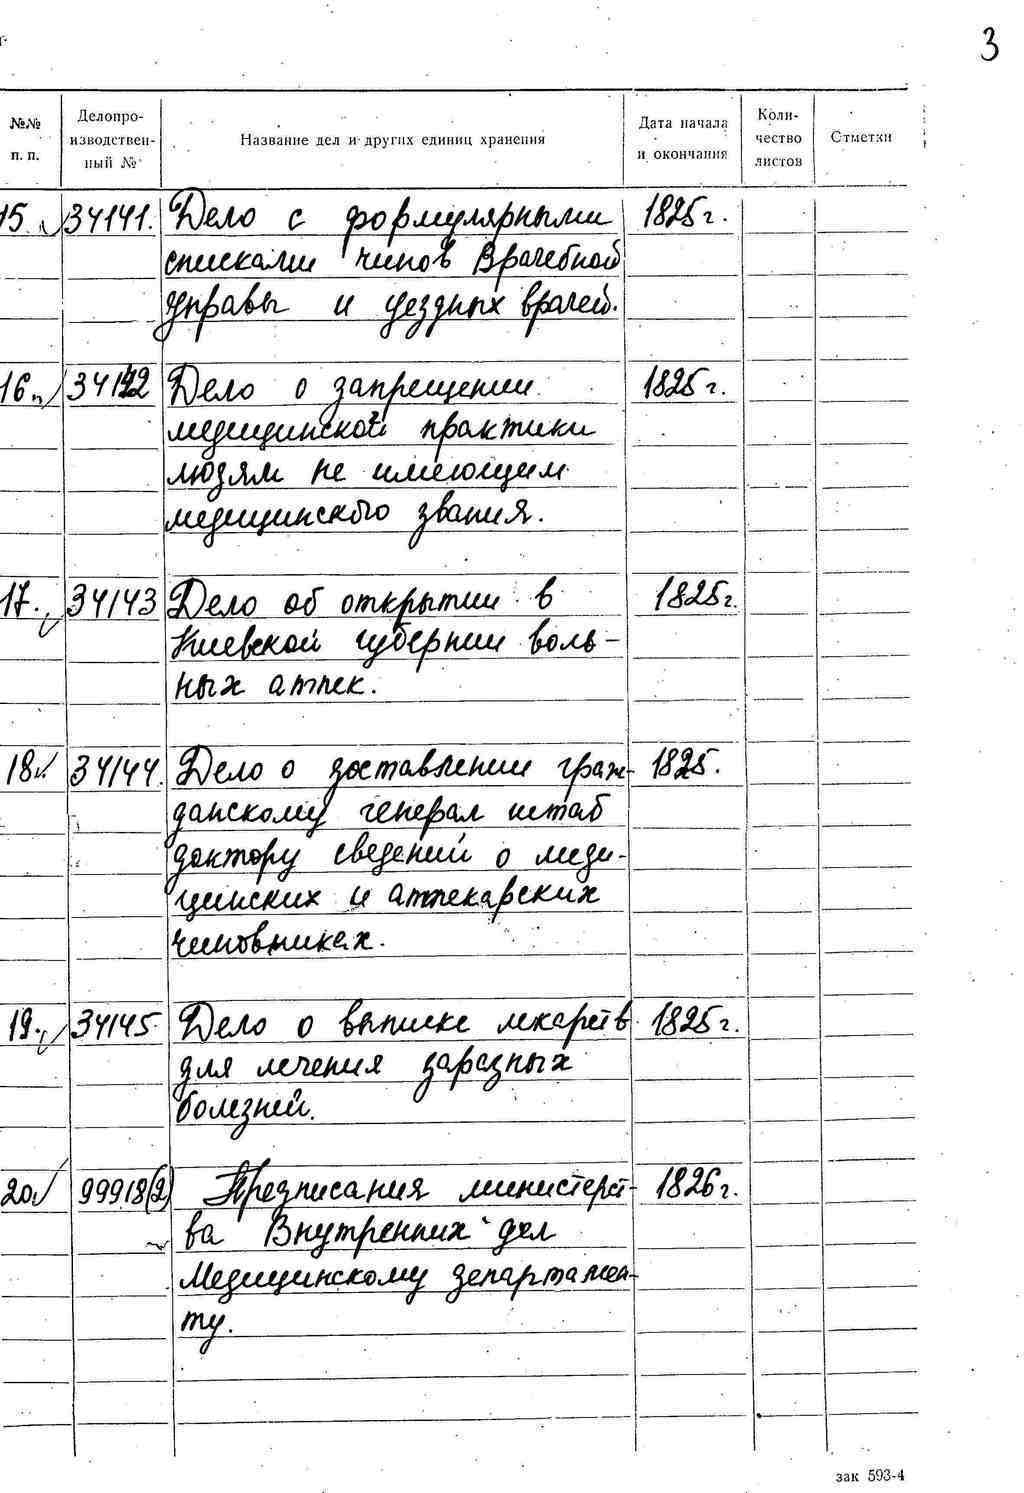 3
№№ п. п. Делопро-изводствен-ный № Название дел и других единиц хранения Дата начала и окончания Коли-чество листов Отметки
15. 34141. Дело с формулярными 1825 г.
списками чинов Врачебной
управы и уездных врачей.
16 34142 Дело о запрещении 1825 г.
медицинской практики
людям не имеющим
медицинского звания.
17. 34143 Дело об открытии в 1825 г.
Киевской губернии воль-
ных аптек.
18 34144. Дело о доставлении граж- 1825.
данскому генерал штаб
доктору сведений о меди-
цинских и аптекарских
чиновниках.
19. 34145. Дело о выписке лекарств 1825 г.
для лечения заразных
болезней.
20 99918(2) Предписания министерст- 1826 г.
ва Внутренних дел
Медицинскому департамен-
ту.
зак 593-4